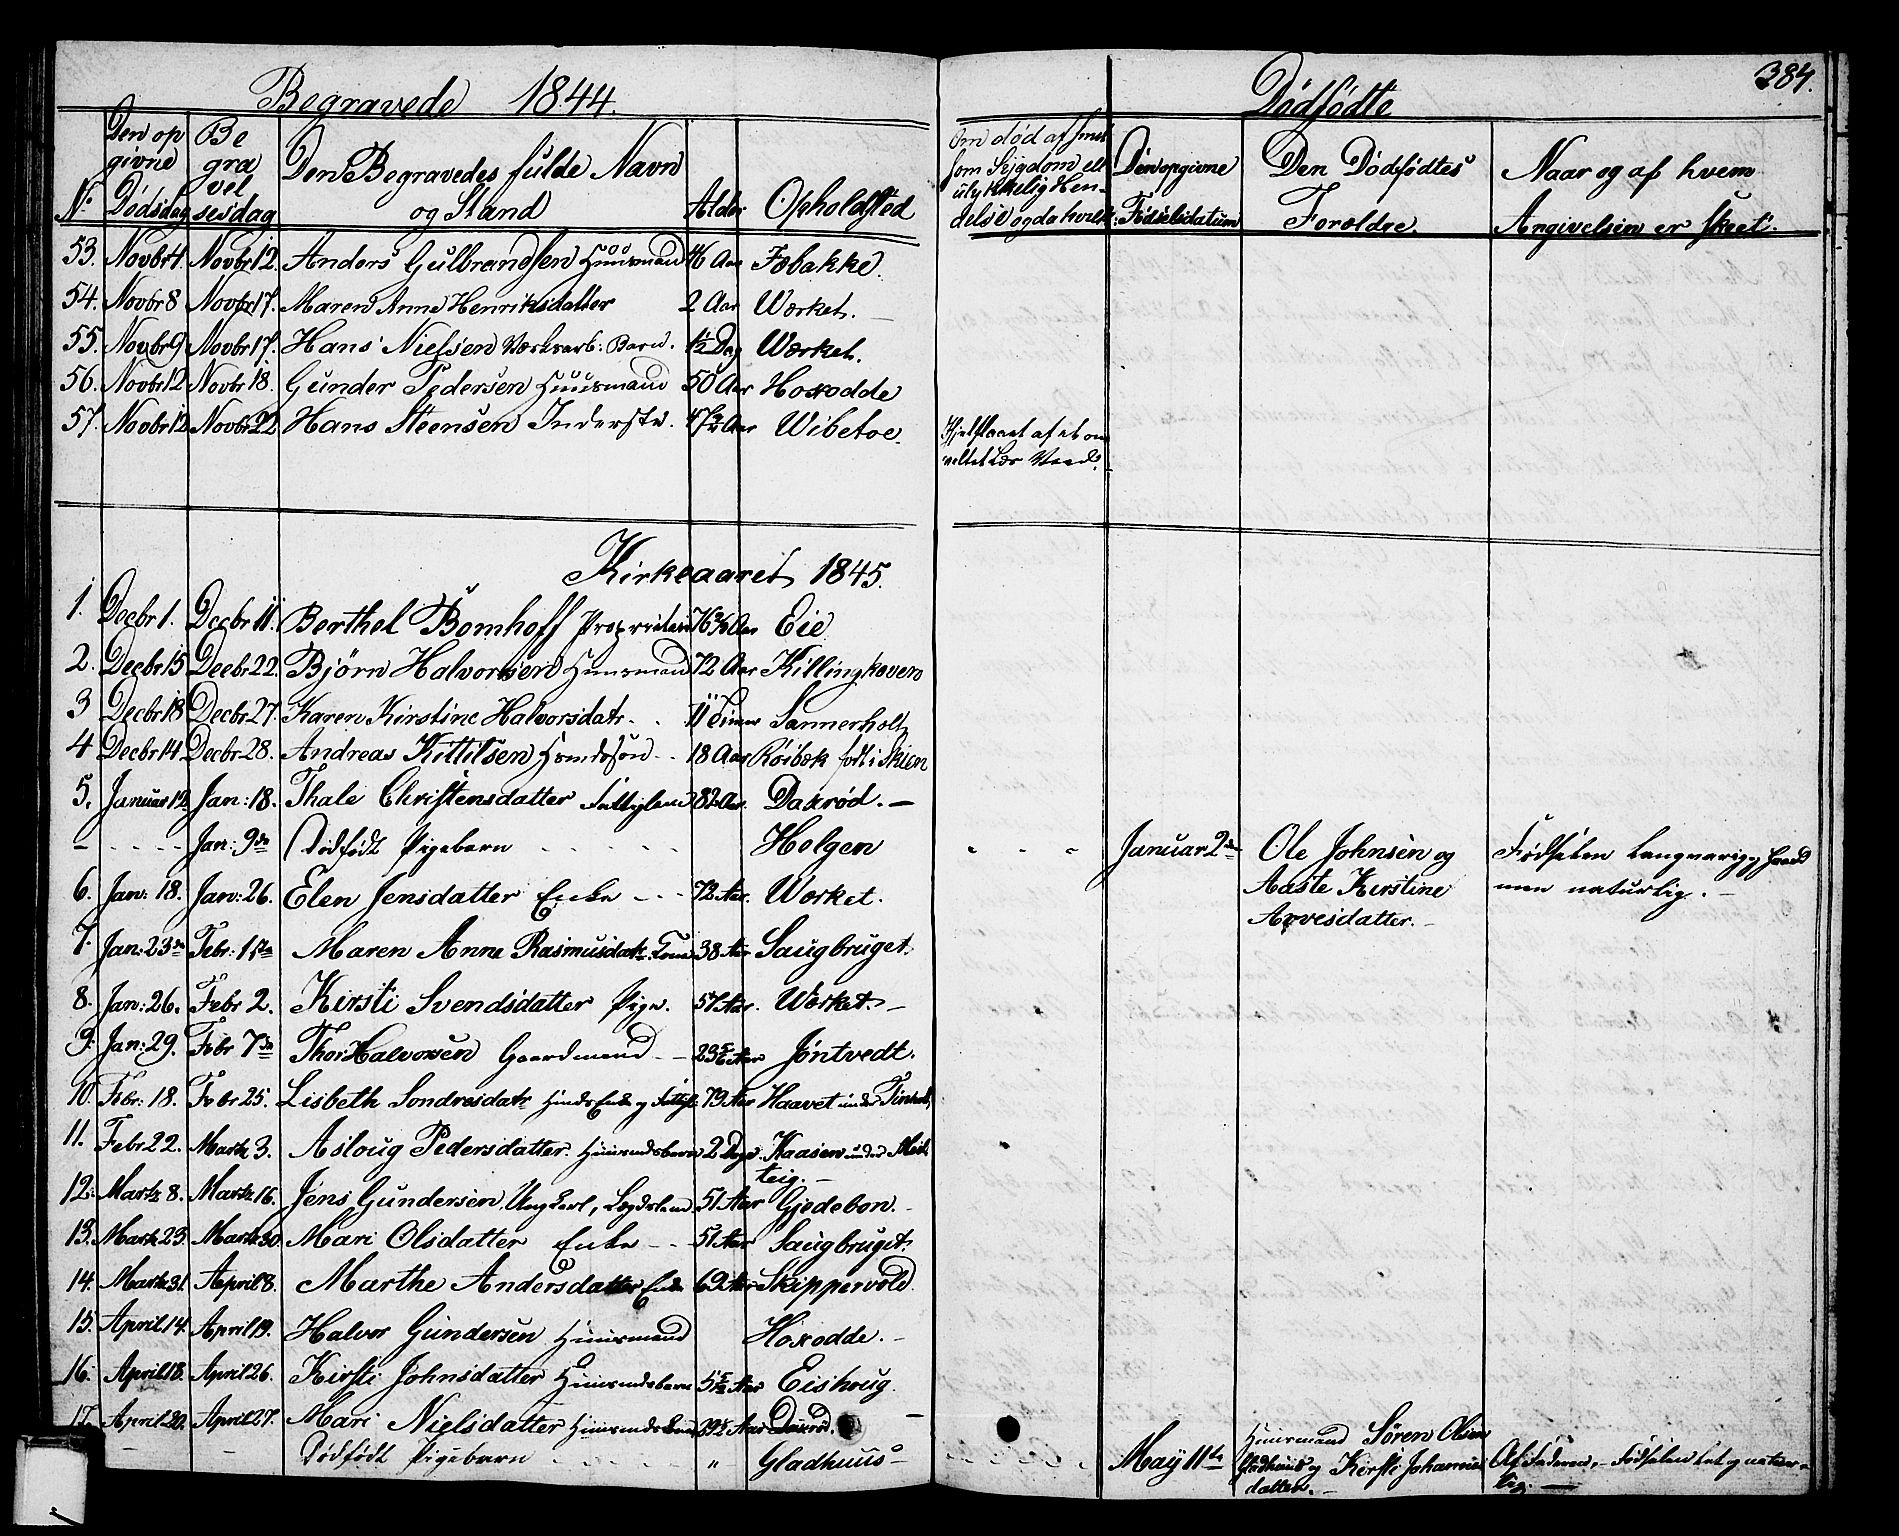 Begravede 1844.
Dødfødte
384.
No
Den opgivne Dødsdag
Begravelsesdag
Den Begravedes fulde Navn og Stand
Alder
Opholdsted
Om død af smitsom Sygdom ell ulykkelig Hendelse og da hvilk
Den opgivne Fødselsdatum
Den Dødfødtes Forældre
Naar og af hvem Angivelsen er skeet.
53. Novbr 4. Novbr 12. Anders Gulbrandsen Huusmand 46 Aar Fæbakke.
54. Novbr 8 Novbr 17. Maren Anne Henriksdatter 2 Aar Wærket.
55. Novbr 9 Novbr 17. Hans Nielsen Værksarb: Barn. 1½ Dag Wærket.
56. Novbr 12 Novbr 18. Gunder Pedersen Huusmand 50 Aar Hoxodde
57. Novbr 12 Novbr 22 Hans Steensen Inderste. Aar Wibetoe. Ihjelslaaet af et omveltet Læs Veed.
Kirkeaaret 1845.
1. Decbr 1. Decbr 11. Berthel Bomhoff Proprietair Aar Eie
2. Decbr 15 Decbr 22. Bjørn Halvorsen Huusmand 72 Aar Killingkoven
3 Decbr 18 Decbr 27. Karen Kirstine Halvorsdatr. 11 Timer Sannerholt
4 Decbr 14 Decbr 28. Andreas Kittilsen 18 Aar Røibæk født i Skien
5. Januar 12 Jan: 18. Thale Christensdatter Fattiglem 82 Aar. Daxrød. —
- - - - - Jan: 9de Dødfødt Pigebarn - - - - - Helgen - - - Januar 2den Ole Johnsen og Fødselen langvarig, haard
Aaste Kirstine men naturlig. —
Arvesdatter. —
6. Jan: 18. Jan: 26. Elen Jensdatter Enke - - - 72 Aar. Wærket.
7. Jan: 23de Febr: 1ste Maren Anne Rasmusdatr. Kone 38 Aar Saugbruget.
8. Jan: 26. Febr 2. Kirsti Svendsdatter Pige. 57 Aar. Wærket. —
9. Jan: 29. Febr 7de Thor Halvorsen Gaardmand - - Aar Jøntvedt.
10. Febr: 18. Febr 25. Lisbeth Sondresdatr Enke og 79 Aar Haavet under
11. Febr 22. Martz 3. Asloug Pedersdatter. Huusmdsbarn 2 Dage Kaasen under
teig. —
12. Martz 8. Martz 16. Jens Gundersen. Ungkarl, Lægdslem 51 Aar Gjedebon. —
13. Martz 23. Martz 30. Mari Olsdatter Enke - - 51 Aar Saugbruget.
14. Martz 31. April 8. Marthe Andersdatter Enke 69 Aar Skippervold.
15. April 14. April 19. Halvor Gundersen Huusmand Hoxodde. —
16. April 18. April 26. Kirsti Johnsdatter Huusmdsbarn Aar Eishoug.
17. April 20. April 27. Mari Nielsdatter Aar Daxrød.
— — Dødfødt Pigebarn - - - - - " Gladhuus — May 11te Huusmand Søren Olsen
Gladhuus og Kirsti Johannes Af Faderen. — Fødselen let og natur-
datter. — lig. —